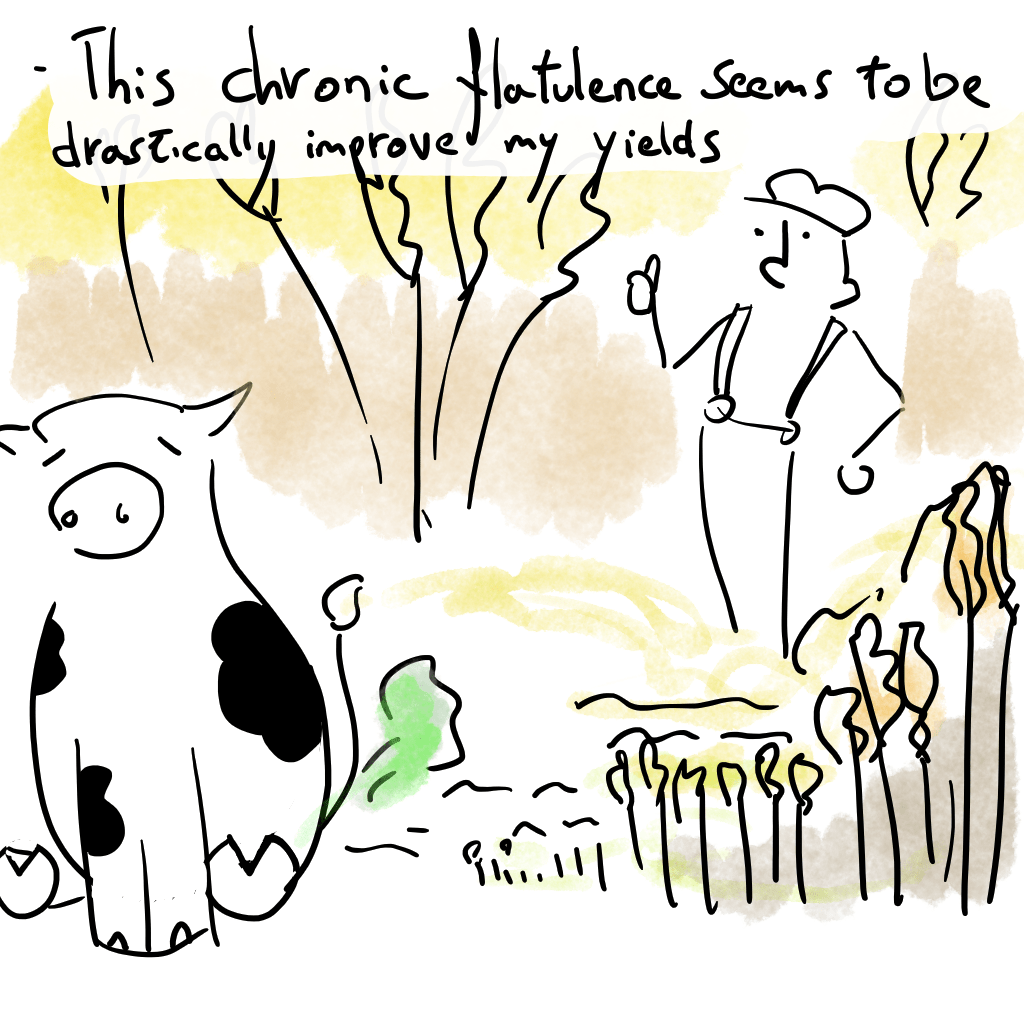 - This chronic flatulence seems to be
drastically improve my yields